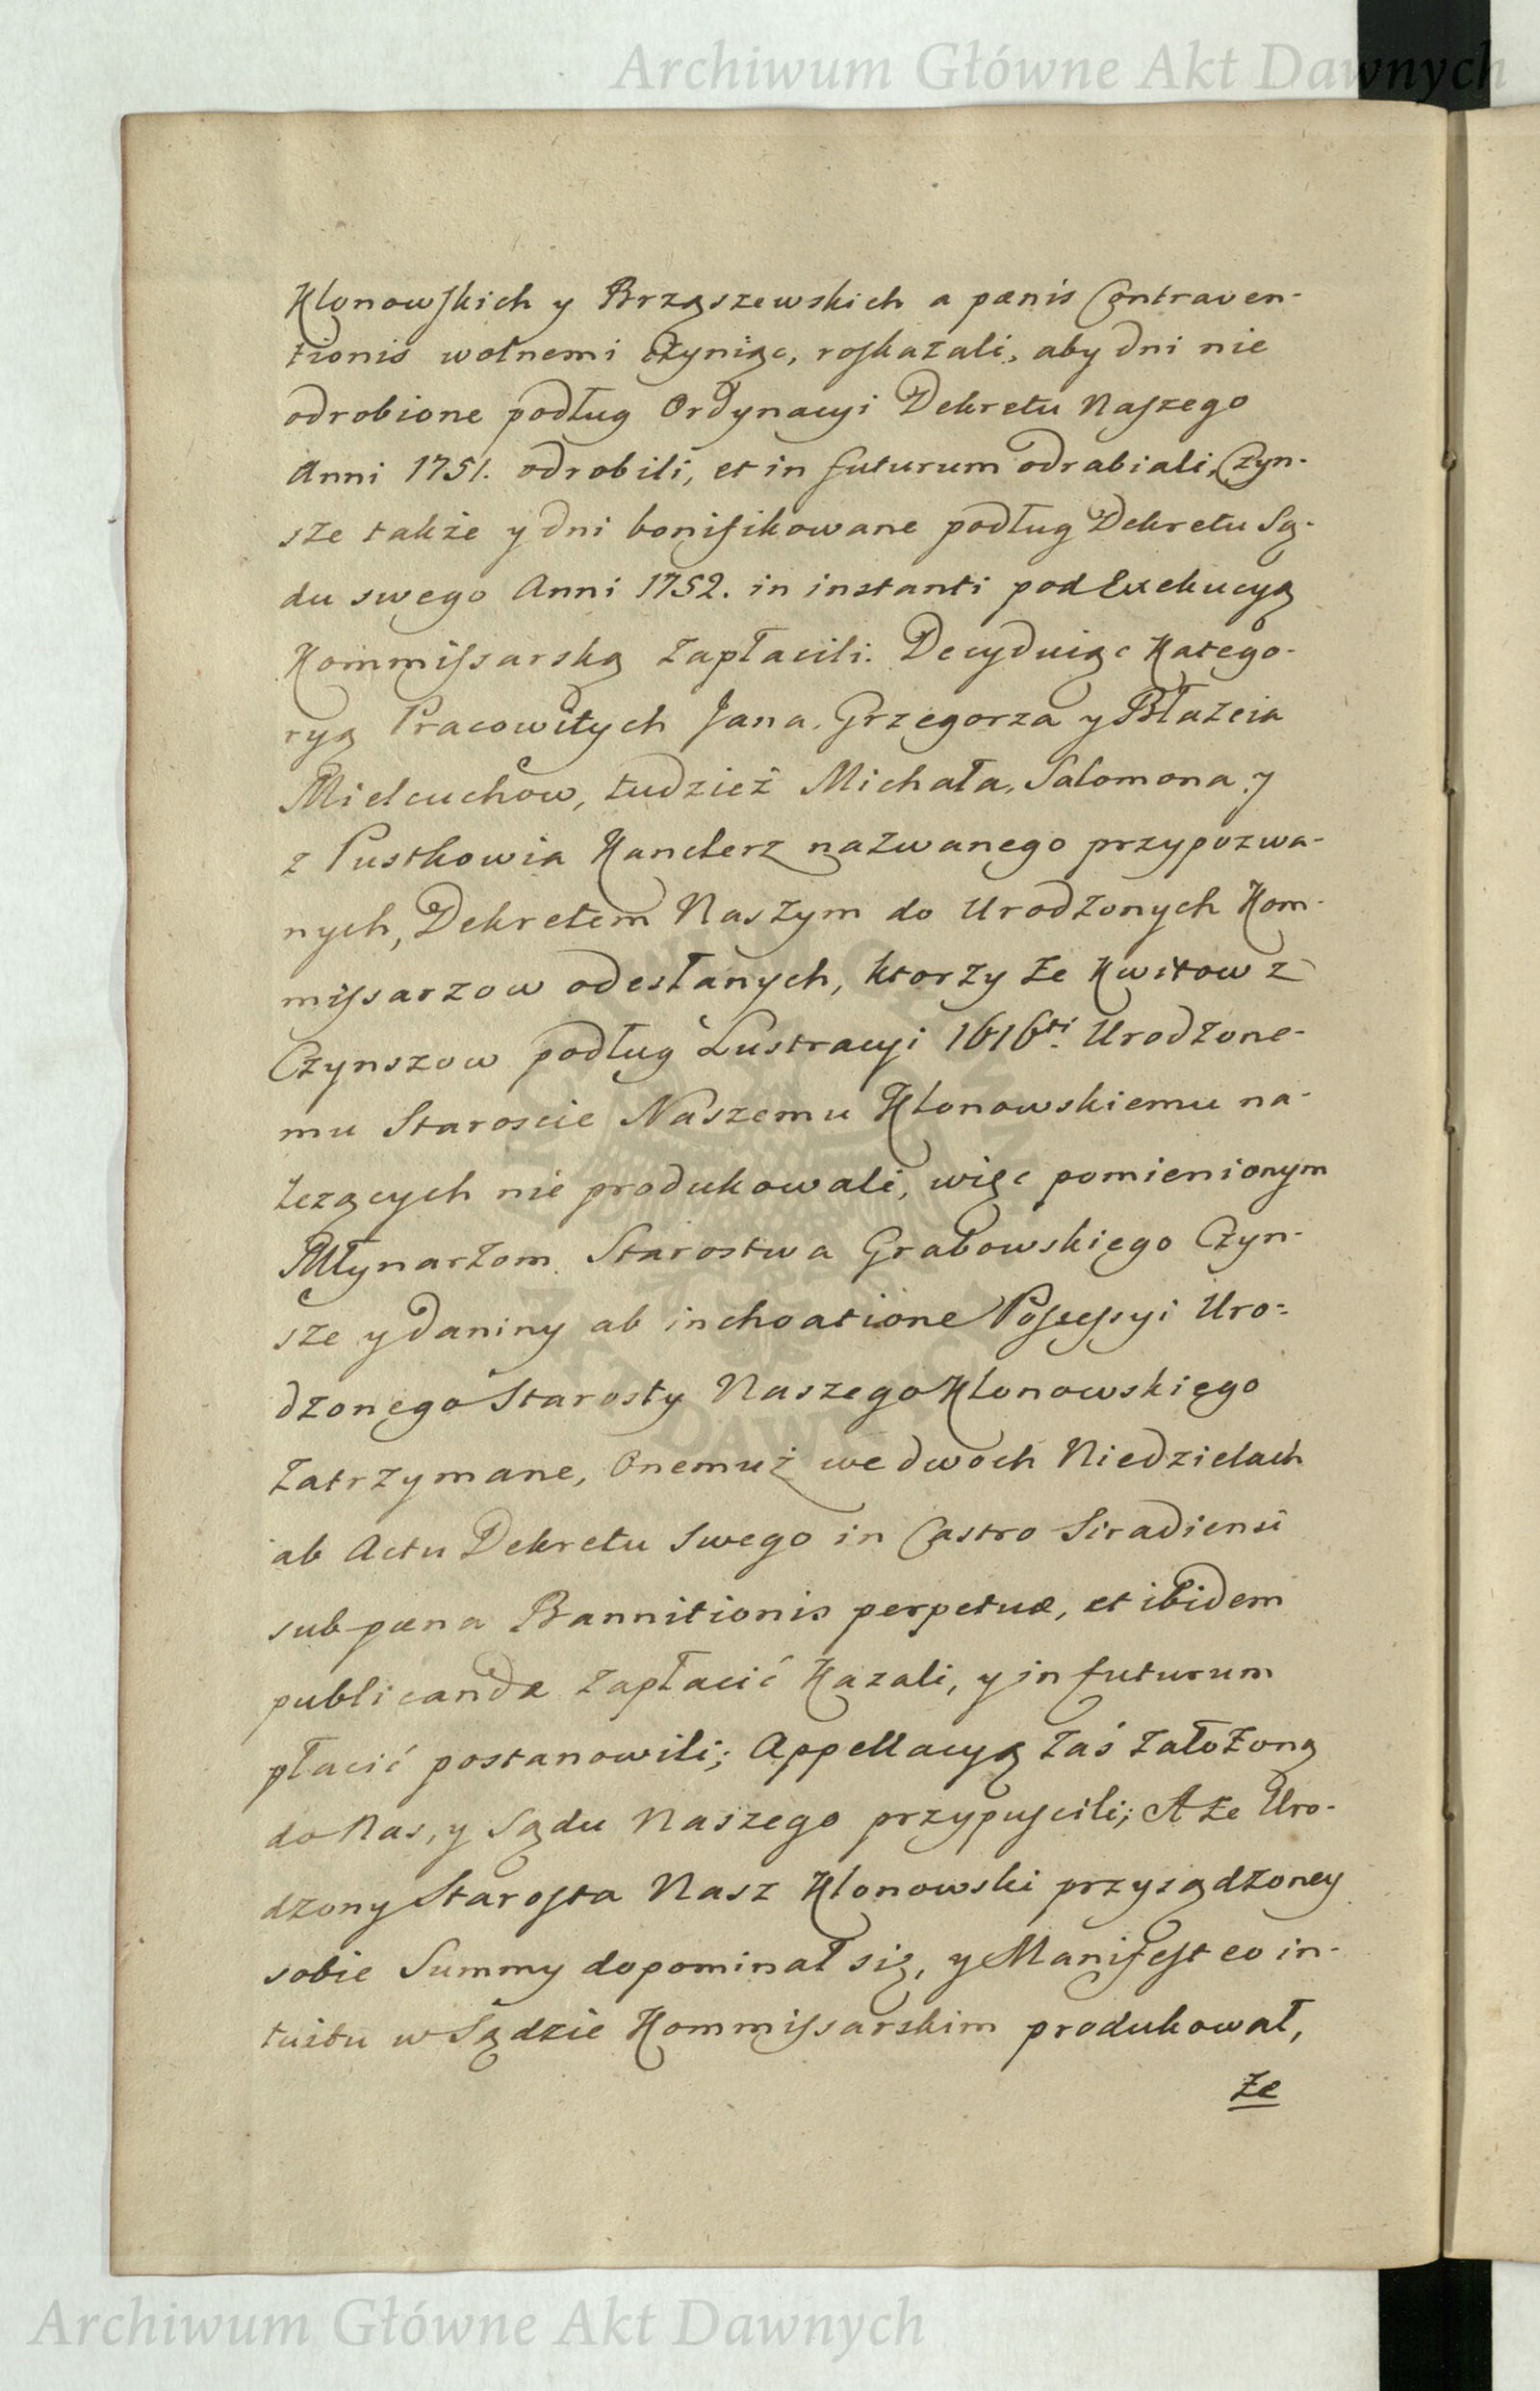 Archiwum Główne Akt Dawnych
Klonowskich y Brząszewskich a pœnis Contraven-
tionis wolnemi czyniąc, roskazali, aby dni nie
odrobione podług Ordynacyi Dekretu Naszego
Anni 1751. odrobili, et in futurum odrabiali, Czyn-
sze także y dni bonifikowane podług Dekretu Są-
du swego Anni 1752. in instanti pod Exekucyą
Kommissarską zapłacili. Decyduiąc Katego-
ryą Pracowitych Jana, Grzegorza y Błażeia
Mielcuchow, tudzież Michała, Salomona, y
z Pustkowia Kanclerz nazwanego przypozwa-
nych, Dekretem Naszym do Urodzonych Kom-
missarzow odesłanych, ktorzy że Kwitow z
Czynszow podług Lustracyi 1616ti. Urodzone-
mu Staroscie Naszemu Klonowskiemu na-
leżących nie produkowali, więc pomienionym
Młynarzom Starostwa Grabowskiego Czyn-
sze y daniny ab inchoatione Possessyi Uro-
dzonego Starosty Naszego Klonowskiego
zatrzymane, Onemuż we dwoch Niedzielach
ab Actu Dekretu Swego in Castro Siradiensi
sub pœna Bannitionis perpetuæ, et ibidem
publicandæ zapłacić kazali, y in futurum
płacić postanowili; Appellacyą zaś założoną
do Nas, y Sądu Naszego przypuscili; A że Uro-
dzony Starosta Nasz Klonowski przysądzoney
sobie Summy dopominał się, y Manifest eo in-
tuitu w Sądzie Kommissarskim produkował,
że
Archiwum Główne Akt Dawnych